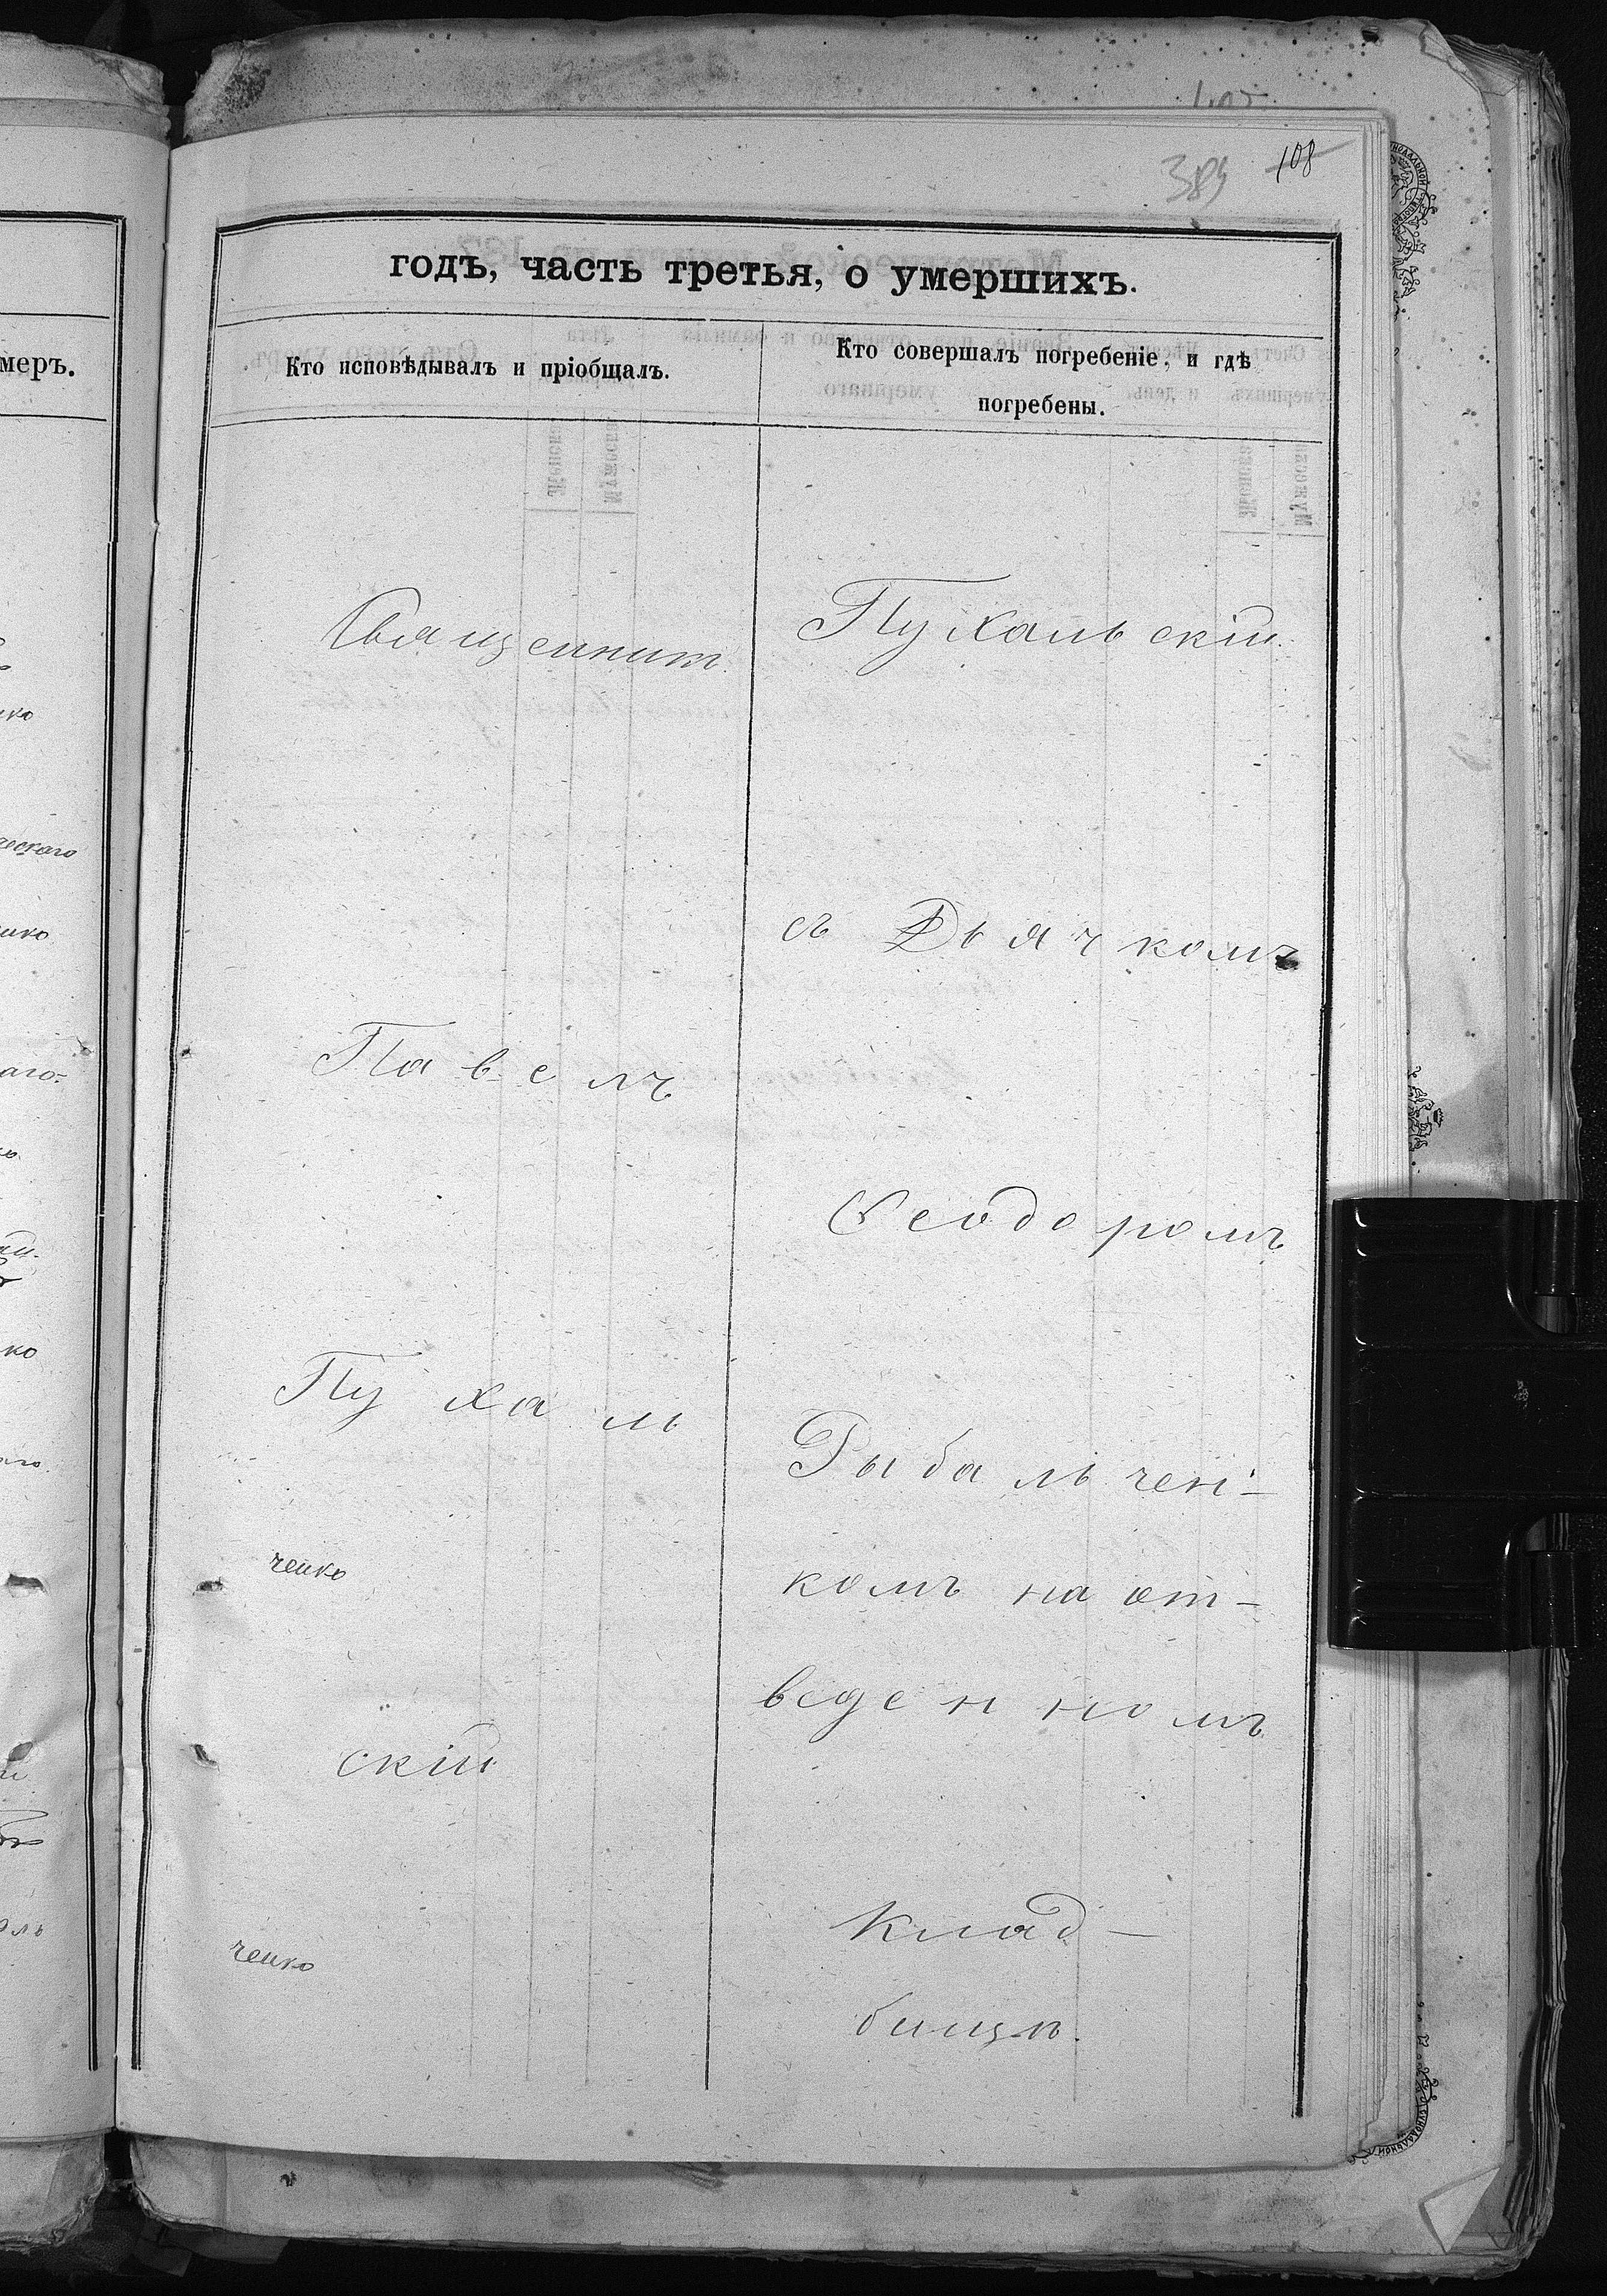 108
389
годъ, часть третья, о умершихъ.
меръ.
Кто исповѣдывалъ и пріобщалъ.
Кто совершалъ погребеніе, и гдѣ
погребены.
Священникъ
Павелъ
Пухаль
ченко
скій
ченко
Пухальскій
съ Дьячкомъ
Ѳеодоромъ
Рыбальчен-
комъ на от-
веденномъ
клад-
бищѣ.